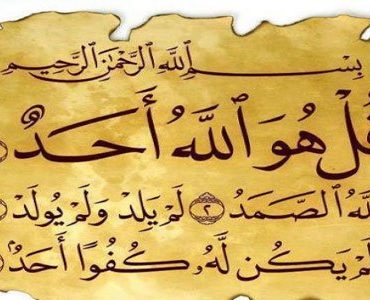 بِسْمِ ٱللَّهِ ٱلرَّحْمَٰنِ ٱلرَّحِيمِ
قُلْ هُوَ ٱللَّهُ أَحَدٌ
ٱللَّهُ ٱلصَّمَدُ ٢ لَمْ يَلِدْ وَلَمْ يُولَدْ
وَلَمْ يَكُن لَّهُۥ كُفُوًا أَحَدٌۢ